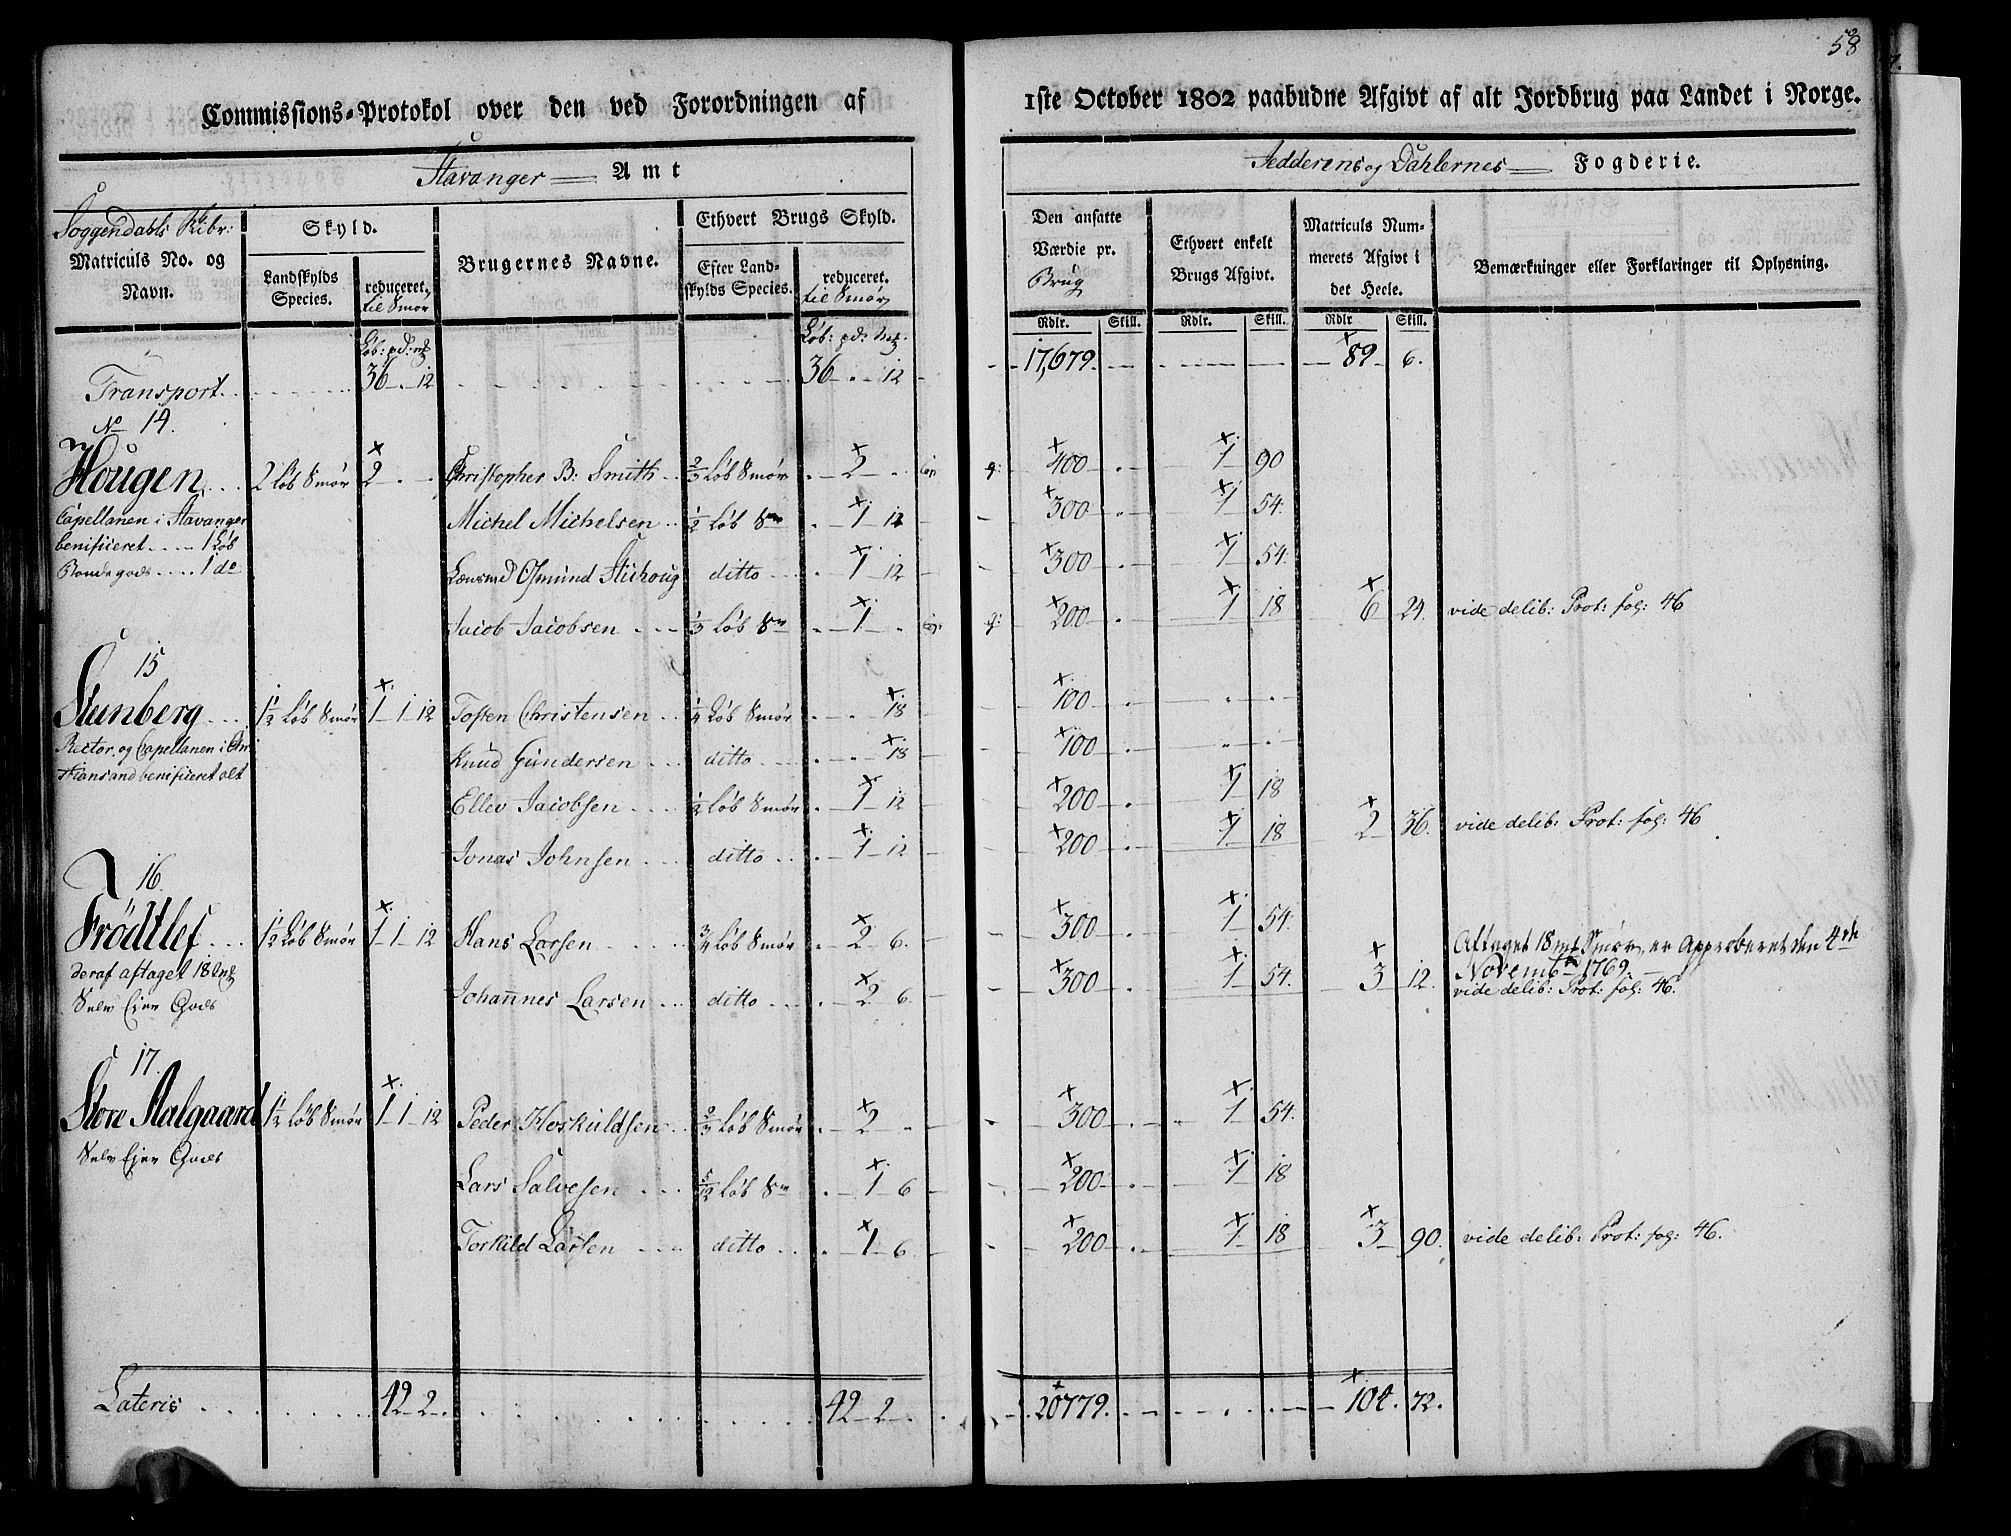 58
Commissions-Protokol over den ved Forordningen af 1ste October 1802 paabudne Afgivt af alt Jordbrug paa Landet i Norge.
Stavanger Amt
Jedderens og Dahlernes Fogderie.
Soggendahls
Matriculs No. og Navn.
Skyld.
Landskylds Species.
reduceret. til Smør
Brugernes Navne.
Ethvert Brugs Skyld.
Efter Landskylds Species.
reduceret. til Smør
Den ansatte Værdie pr. Brug
Ethvert enkelt Brugs Afgivt.
Matriculs Nummerets Afgivt i det Heele.
Bemærkninger eller Forklaringer til Oplysning.
Rdlr. Skill. Rdlr. Skill. Rdlr Skill.
Løb: pd: Løb: pd:
Transport 36 .. 12 36 .. 12 17,679. 89 6.
No 14.
Hougen 2 Løb Smør 2 Christopher B: Smith 2/3 Løb Smør 2 400 1 90
Capellanen i Stavanger Michel Michelsen 1/2 Løb Sm 1 12 300 1 54.
benificeret 1 Løb
Bondegods 1 do Lensmd Osmund Stuhoug ditto 1 12 300 1 54.
Jacob Jacobsen 1/3 Løb Sm 1 200 1 18 6 24. vide delib: Prot: fol: 46
15
Steinberg 1 1/2 Løb Smør 1 1 12 Tosten Christensen 1/4 Løb Smør 18 100
Rector og Capellanen i Chri Knud Gundersen ditto 18 100
stiansand benificeret alt
Ellev Jacobsen 1/2 Løb Smør 1 12 200 1 18
Jonas Johnsen ditto 1 12 200 1 18 2 36. vide delib: Prot: fol: 46
16
Frödtlef 1 1/2 Løb Smør 1 1 12 Hans Larsen 3/4 Løb Smør 2 6. 300 1 54.
deraf aftaget 18 Afinget 18 Smør, er Approberet den 4de Novembr 1769.
Selv Ejer Gods Johannes Larsen ditto 2 6. 300 1 54. 3 12. vide delib: Prot: fol: 46.
17.
Store Aalgaard 1 1/2 Løb Smør 1 1 12 Peder Hoskuldsen 2/3 Løb Smør 2 300 1 54.
Selv Ejer Gods
Lars Salvesen 5/12 Løb Sm 1 6 200 1 18
Torkild Larsen ditto 1 6 200 1 18 3 90. vide delib: Prot: fol: 46.
Lateris 42 2 42 2 20779. 104. 72.